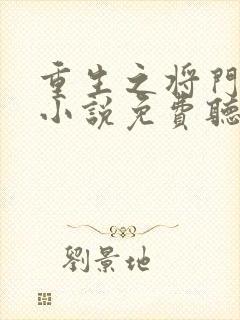 重生之将門
小說免費聽
劉景地